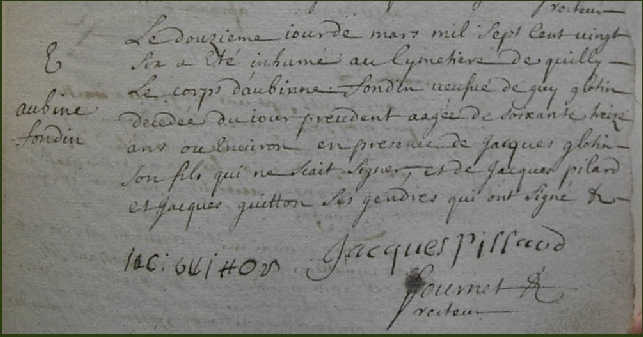 recteur
Le douzieme iour de mars mil sept cent vingt
six a été inhumé au Cymetiere de quilly
Le corps daubinne fondin veufue de guy glotin
decedée du iour precedent aagée de soixante treize
ans ou Environ en presence de Jacques glotin
son fils qui ne scait signer, et de Jacques pilard
et Jacques guitton ses gendres qui ont signé &
&
aubine
fondin
iac: guitton
Jacques Pillard
fournet &
recteur